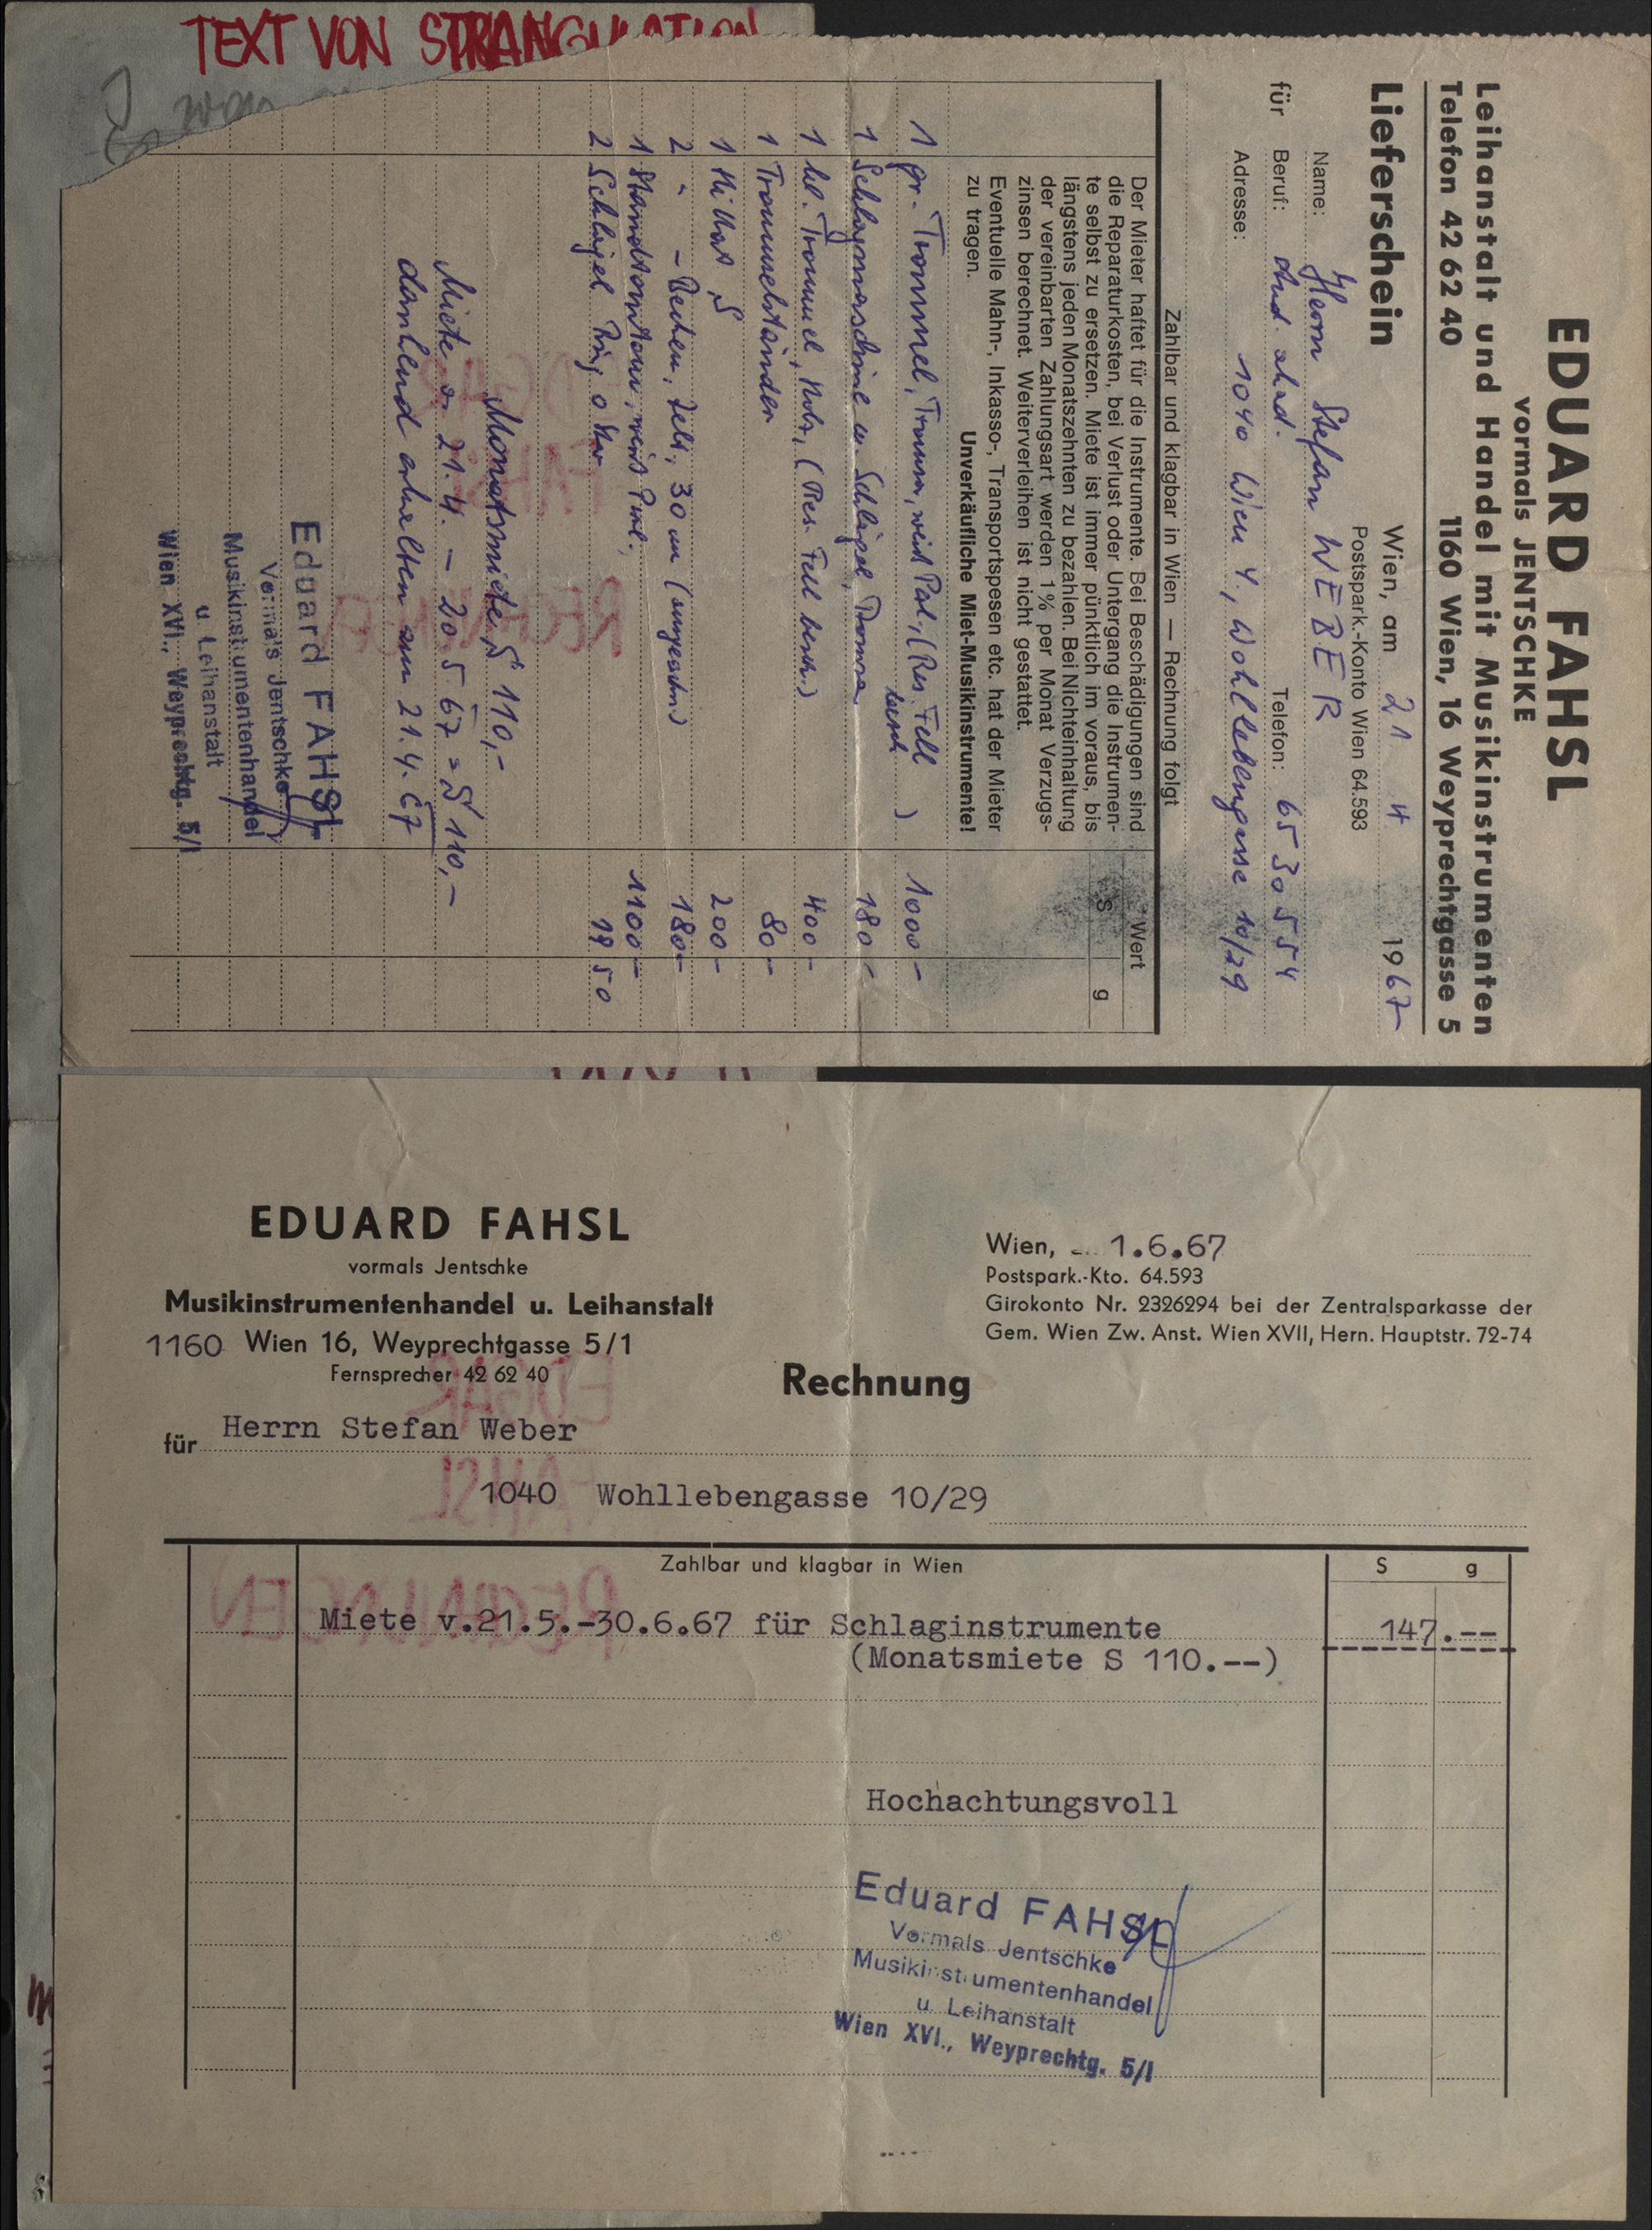 TEXT VON STRANGULATION
EDUARD FAHSL
vormals JENTSCHKE
Leihanstalt und Handel mit Musikinstrumenten
Telefon 42 62 40 1160 Wien, 16 Weyprechtgasse 5
Lieferschein Wien, am 21 4 1967
Postspark.-Konto Wien 64.593
Name: Herrn Stefan WEBER
für Beruf: stud. akad. Telefon: 65 30 554
Adresse: 1040 Wien 4, Wohllebengasse 10/29
Zahlbar und klagbar in Wien — Rechnung folgt
Der Mieter haftet für die Instrumente. Bei Beschädigungen sind
die Reparaturkosten, bei Verlust oder Untergang die Instrumen-
te selbst zu ersetzen. Miete ist immer pünktlich im voraus, bis
längstens jeden Monatszehnten zu bezahlen. Bei Nichteinhaltung
der vereinbarten Zahlungsart werden 1% per Monat Verzugs-
zinsen berechnet. Weiterverleihen ist nicht gestattet.
Eventuelle Mahn-, Inkasso-, Transportspesen etc. hat der Mieter
zu tragen.
Unverkäufliche Miet-Musikinstrumente!
Wert
S g
1 gr. Trommel, Tromsa, weiß Perl., (Res. Fell besch.) 1000-
1 Schlagmaschine u. Schlägel, Tromsa 180-
1 kl. Trommel, Holz, (Res. Fell besch.) 400-
1 Trommelständer 80-
1 Hihat S 200-
2 " - Becken, Zelt, 30 cm 180-
1 Standtomtom, weiß Perl., 1100-
2 Schlägel Ring o Star 19 50
Monatsmiete S 110,-
Miete v. 21.4. - 20.5.67 = S 110,-
dankend erhalten am 21.4.67
Eduard FAHSL
Vormals Jentschke
Musikinstrumentenhandel
u. Leihanstalt
Wien XVI., Weyprechtg. 5/I
EDUARD FAHSL
vormals Jentschke
Musikinstrumentenhandel u. Leihanstalt
1160 Wien 16, Weyprechtgasse 5/1
Fernsprecher 42 62 40
Wien, 1.6.67
Postspark.-Kto. 64.593
Girokonto Nr. 2326294 bei der Zentralsparkasse der
Gem. Wien Zw. Anst. Wien XVII, Hern. Hauptstr. 72-74
Rechnung
für Herrn Stefan Weber
1040 Wohllebengasse 10/29
Zahlbar und klagbar in Wien S g
Miete v.21.5.-30.6.67 für Schlaginstrumente 147.--
(Monatsmiete S 110.--)
Hochachtungsvoll
Eduard FAHSL
Vormals Jentschke
Musikinstrumentenhandel
u. Leihanstalt
Wien XVI., Weyprechtg. 5/I
EDGAR
FAHSL
RECHNUNGEN